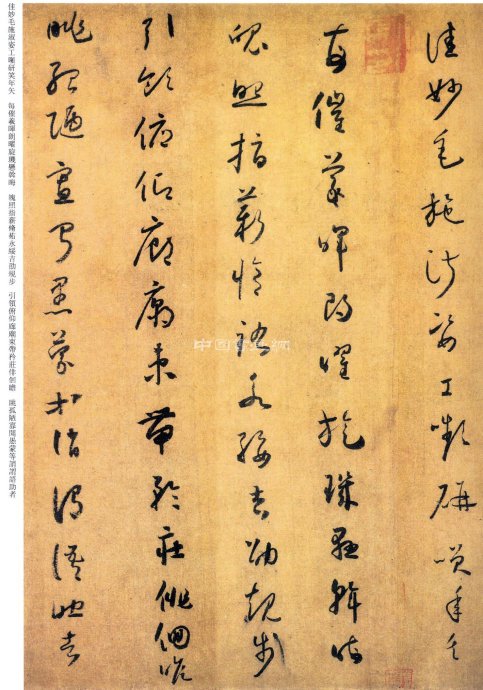 佳妙毛施淑姿工嚬研笑年矢
每催羲暉朗曜旋璣懸斡晦
魄照指薪脩祜永綏吉劭矩步
引領俯仰廊廟束帶矜莊徘徊瞻
眺孤陋寡聞愚蒙等誚謂語助者
佳妙毛施淑姿工嚬研笑年矢　每催羲暉朗曜旋璣懸斡晦　魄照指薪脩祜永綏吉劭矩步　引領俯仰廊廟束帶矜莊徘徊瞻　眺孤陋寡聞愚蒙等誚謂語助者